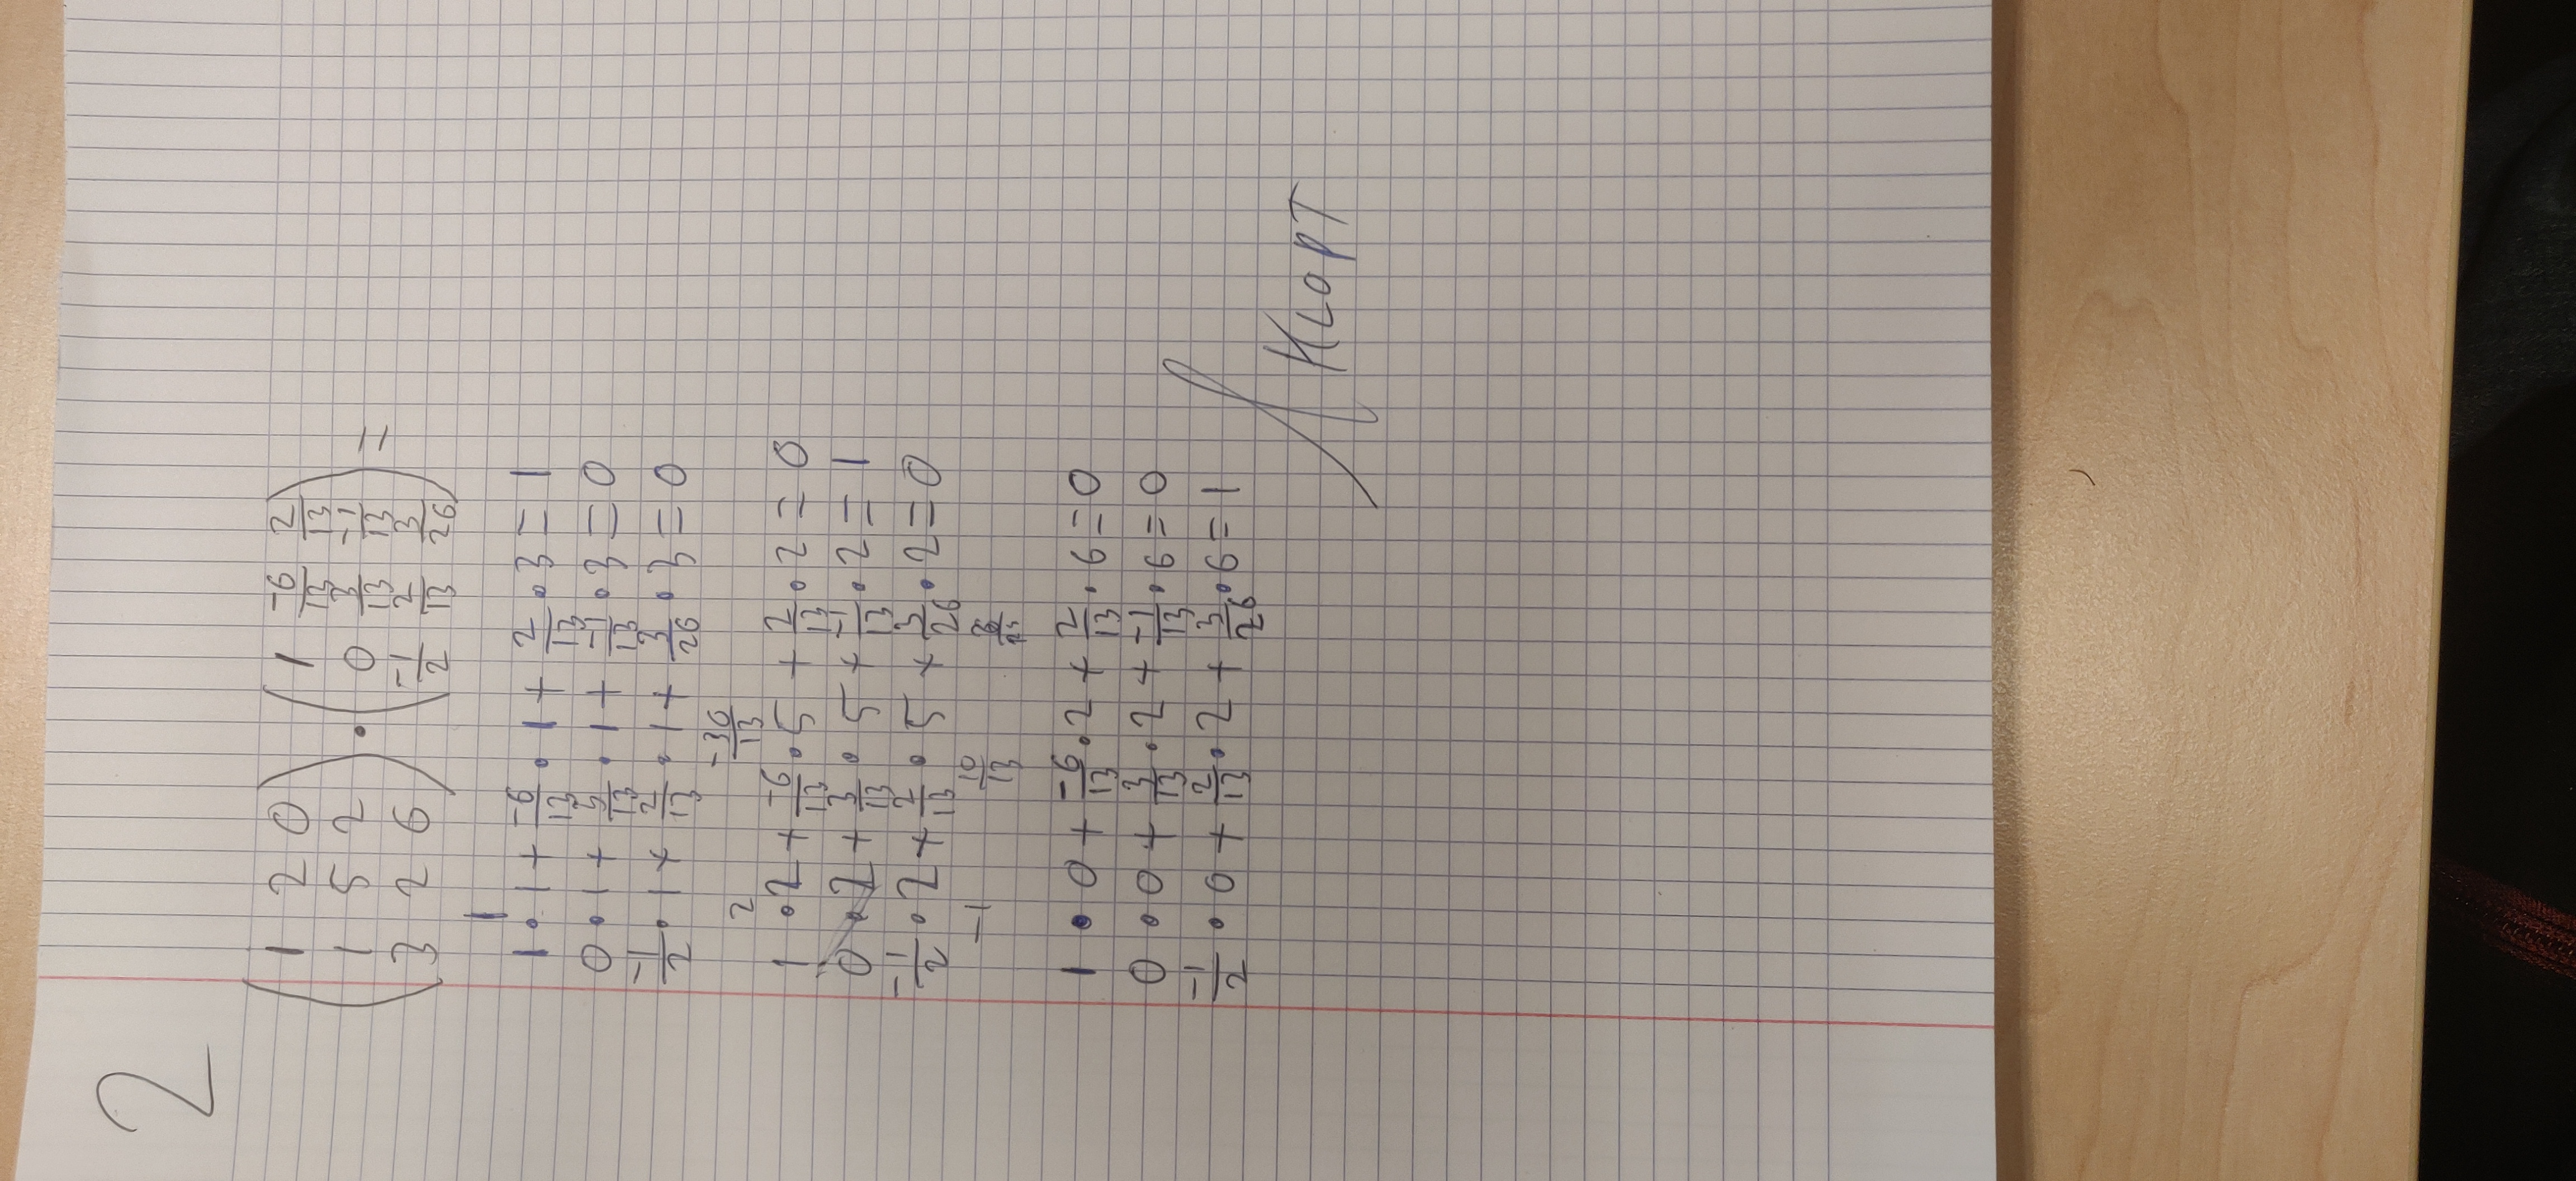 2
( 1 2 0 ) · ( 1 -6/13 2/13 ) =
( 1 5 2 ) ( 0 3/13 -1/13 )
( 3 2 6 ) ( -1/2 2/13 3/26 )
1
1 · 1 + -6/13 · 1 + 2/13 · 3 = 1
0 · 1 + 3/13 · 1 + -1/13 · 3 = 0
-1/2 · 1 + 2/13 · 1 + 3/26 · 3 = 0
2 -30/13
1 · 2 + -6/13 · 5 + 2/13 · 2 = 0
0 · 2 + 3/13 · 5 + -1/13 · 2 = 1
-1/2 · 2 + 2/13 · 5 + 3/26 · 2 = 0
-1 10/13
1 · 0 + -6/13 · 2 + 2/13 · 6 = 0
0 · 0 + 3/13 · 2 + -1/13 · 6 = 0
-1/2 · 0 + 2/13 · 2 + 3/26 · 6 = 1